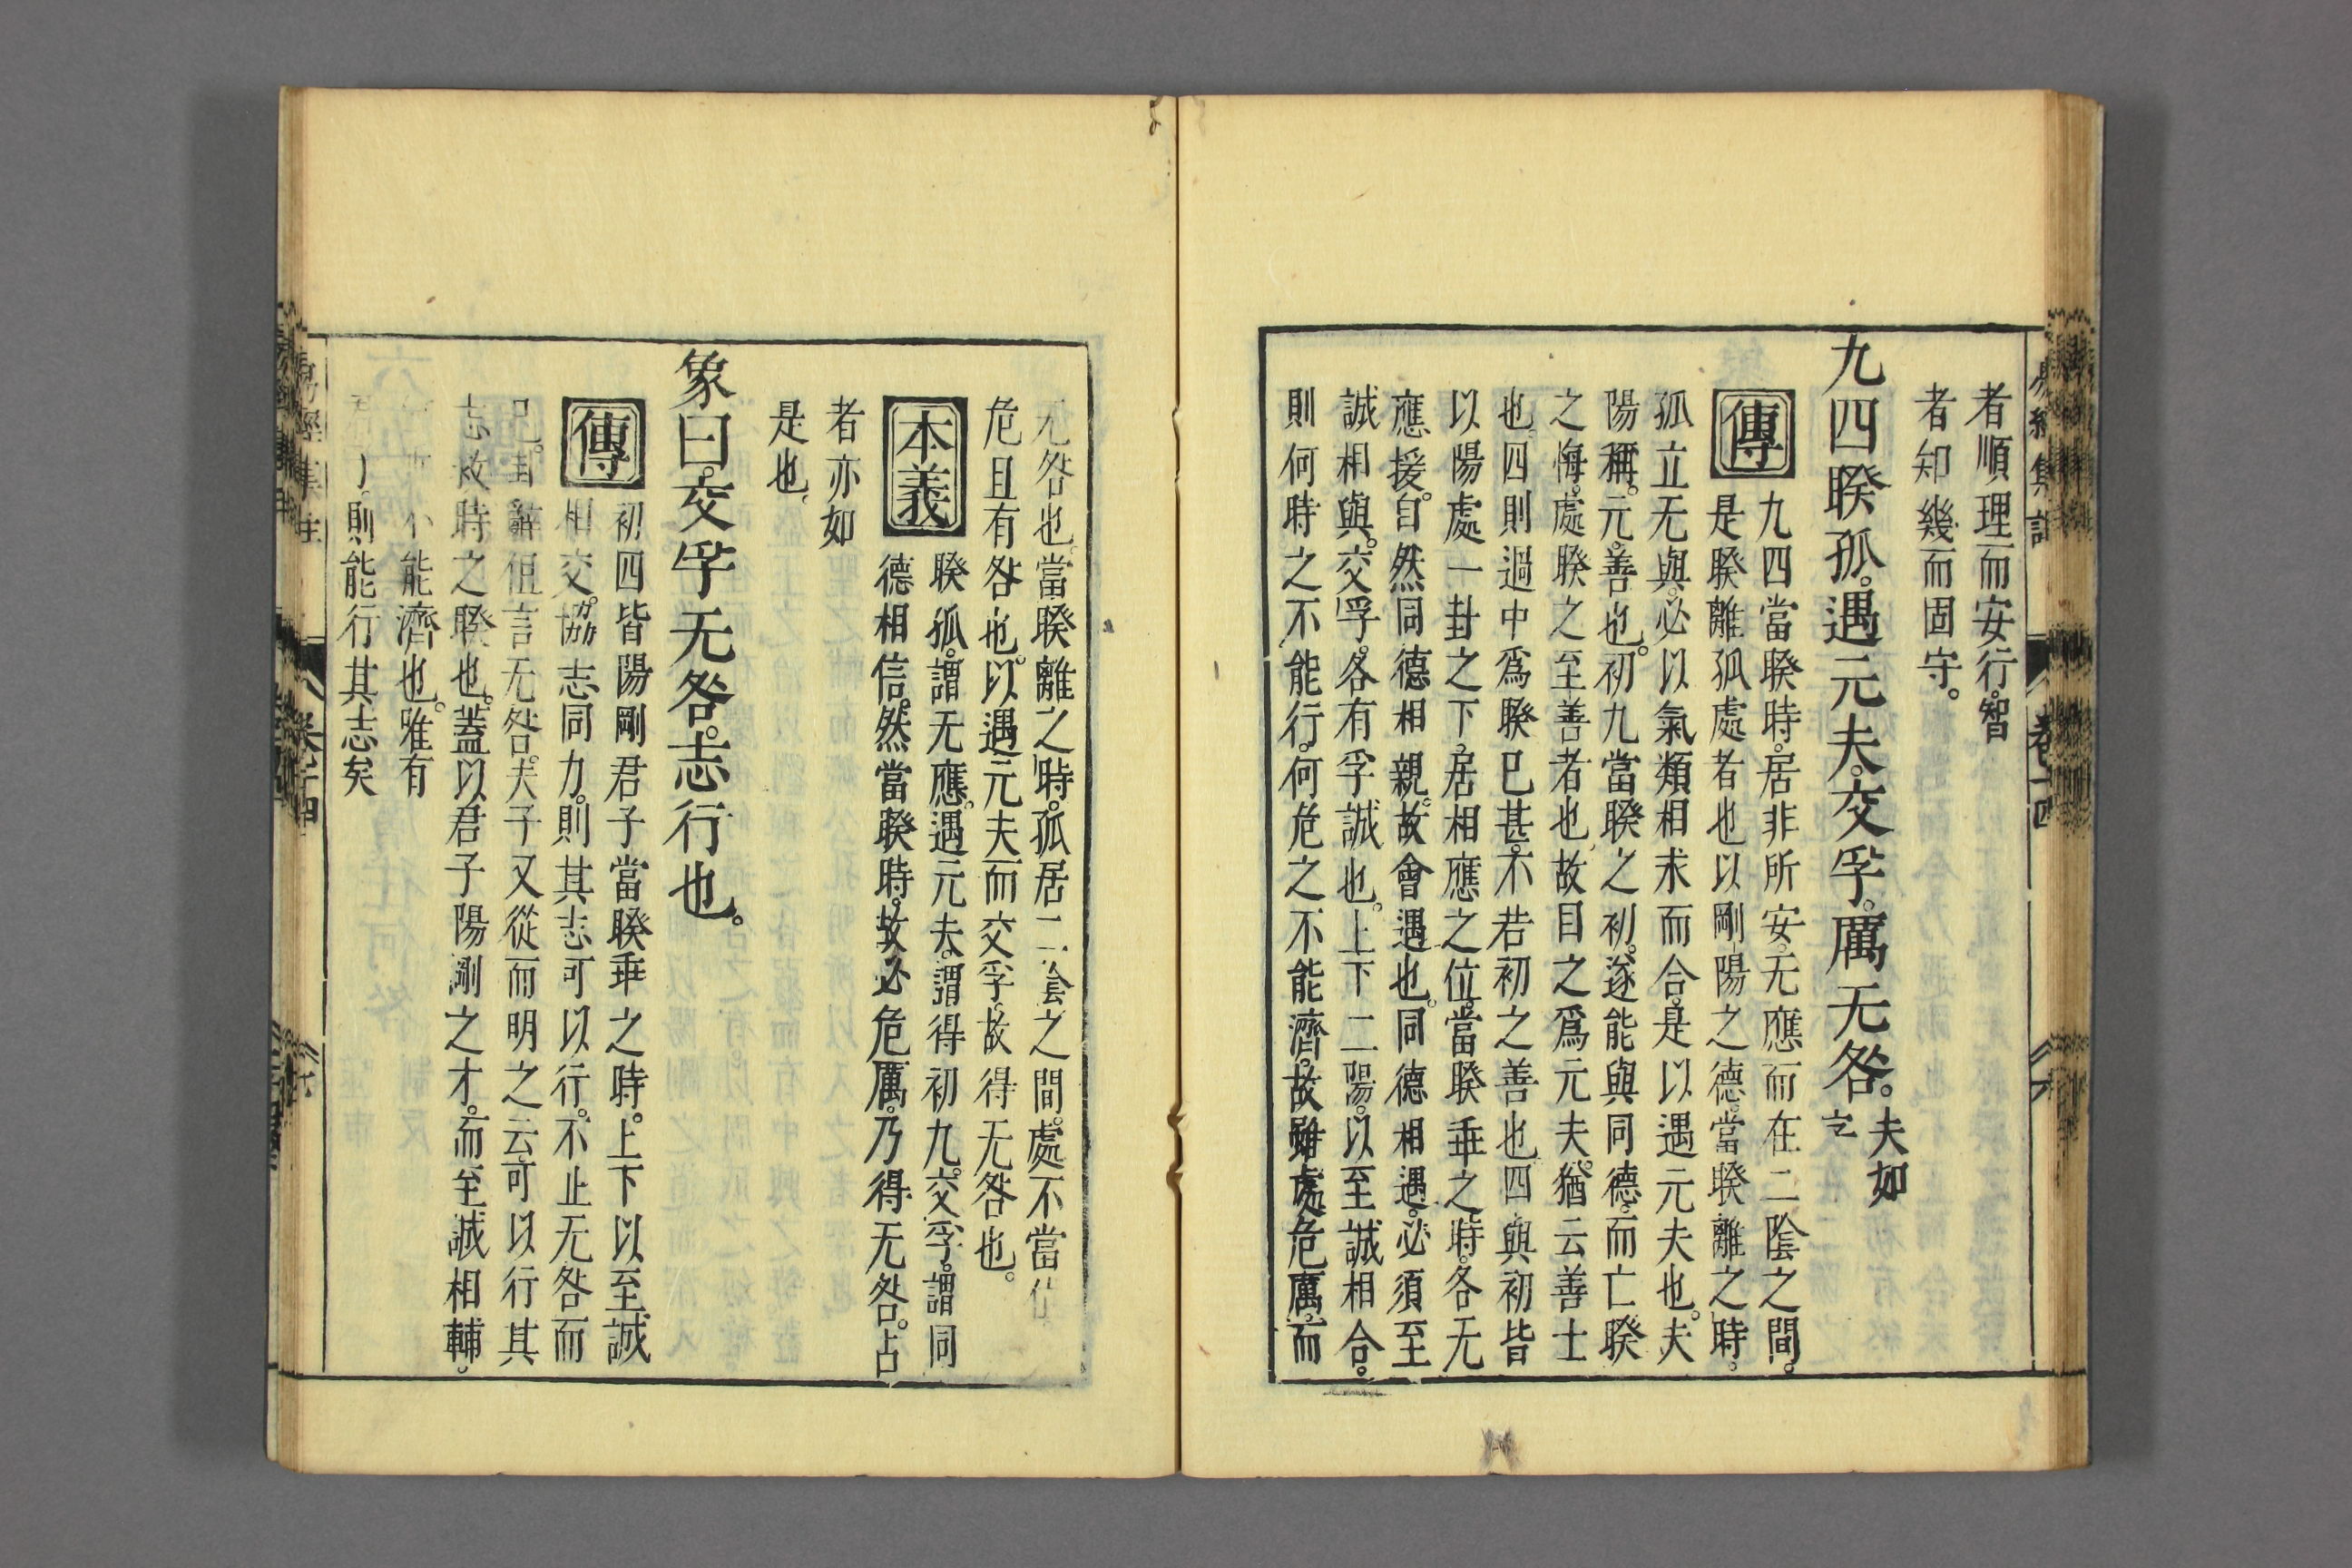 者順理而安行。智
者知幾而固守。
九四睽孤。遇元夫。交孚。厲无咎。夫如字
傳
九四當睽時。居非所安。无應而在二陰之間。
是睽離孤處者也以剛陽之德。當睽離之時。
孤立无與。必以氣類相求而合。是以遇元夫也。夫
陽稱。元。善也。初九當睽之初。遂能與同德。而亡睽
之悔。處睽之至善者也。故目之爲元夫。猶云善士
也。四則過中爲睽已甚。不若初之善也四與初皆
以陽處一卦之下。居相應之位。當睽乖之時。各无
應援。自然同德相親。故會遇也。同德相遇。必須至
誠相與。交孚。各有孚誠也。上下二陽。以至誠相合。
則何時之不能行。何危之不能濟。故雖處危厲。而
无咎也。當睽離之時。孤居二陰之間。處不當位
危且有咎也。以遇元夫而交孚。故得无咎也。
本義
睽孤。謂无應。遇元夫。謂得初九。交孚。謂同
德相信。然當睽時。故必危厲。乃得无咎。占
者亦如
是也。
象曰。交孚无咎。志行也。
傳
初四皆陽剛君子當睽乖之時。上下以至誠
相交。協志同力。則其志可以行。不止无咎而
已。卦辭但言无咎。夫子又從而明之云可以行其
志。救時之睽也。蓋以君子陽剛之才。而至誠相輔。
能濟也。唯有
則能行其志矣
易經集註
卷十四
六